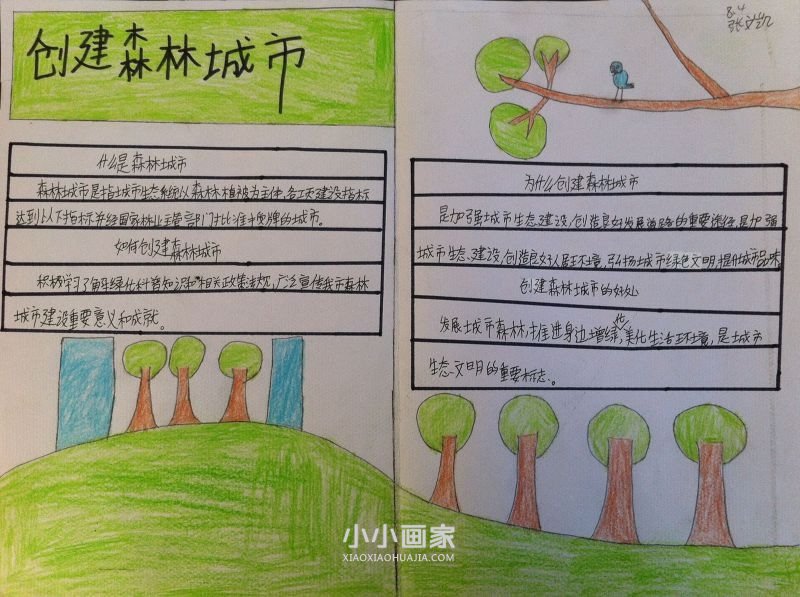 创建森林城市
什么是森林城市
森林城市是指城市生态系统以森林植被为主体,各项建设指标
达到以下指标并经国家林业主管部门批准授牌的城市。
如何创建森林城市
积极学习了解绿化科普知识和相关政策法规,广泛宣传我市森林
城市建设重要意义和成就。
8.4
为什么创建森林城市
是加强城市生态建设,创造良好发展道路的重要途径,是加强
城市生态、建设,创造良好人居环境,弘扬城市绿色文明,提升城市品味
创建森林城市的好处
发展城市森林,推进身边增绿,美化生活环境,是城市
化
生态文明的重要标志。
小小画家
XIAOXIAOHUAJIA.COM